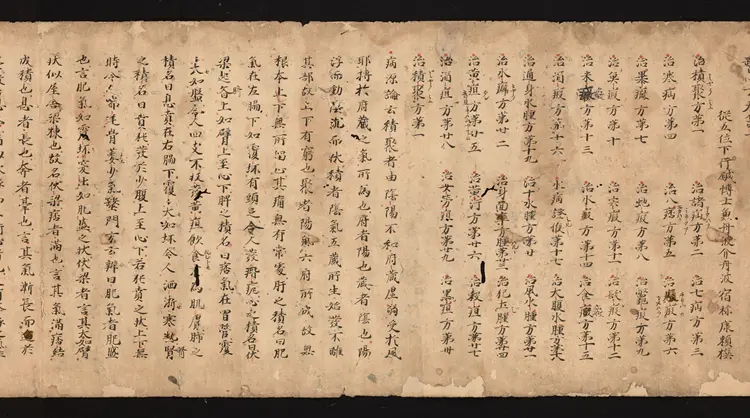 從五位下行鍼博士兼丹波介丹波宿祢康頼撰
治積聚方第一 治諸疝方第二 治七疝方第三
治寒疝方第四 治八痞方第五 治癥瘕方第六
治暴癥方第七 治蛇瘕方第八 治鼈瘕方第九
治魚瘕方第十 治宍瘕方第十一 治髮瘕方第十二
治米瘕方第十三 治水瘕方第十四 治食瘕方第十五
治酒瘕方第十六 水病證候第十七 治大腹水腫方第十八
治通身水腫方第十九 治十水腫方第廿 治風水腫方第廿一
治水癖方第廿二 治身面卒腫方第廿三 治犯土腫方第廿四
治黄疸方第廿五 治黄汗方第廿六 治穀疸方第廿七
治酒疸方第廿八 治女勞疸方第廿九 治黑疸方第卅
治積聚方第一
病源論云積聚者由陰陽不和府藏虚弱受於風
耶搏於府藏之氣所為也府者陽也藏者陰也陽
浮而動陰沉而伏積者陰氣五藏所生始發不離
其部故上下有窮也聚者陽氣六府所成故無
根本上下無所留止其痛無有常處肝之積名曰肥
氣在左脇下如覆坏有頭足令人發痎瘧心之積名曰伏
梁起齊上如臂上至心下脾之積名曰痞氣在胃管覆
大如盤令人四支不收發黄疸飲食不為肌膚肺之
積名曰息賁在右脇下覆大如坏令人洒淅寒熱腎
之積名曰賁㹠發於少腹上至心下若㹠賁之狀上下無
時令人喘逆骨萎少氣 辨曰肥氣者肥盛
也言肥氣如覆坏突出如肥盛之狀伏梁者言其如臂
狀似屋舍梁棟也故名伏梁痞者滿也言其氣滿痞結
成積也息者長也奔者也言其氣漸長而逼於